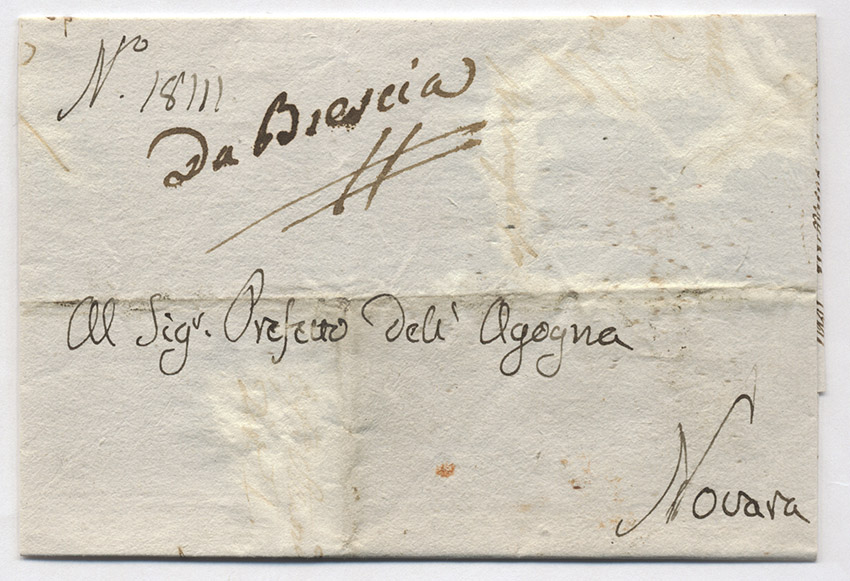 N.º 18111
Da Brescia
Al Sigr. Prefetto Dell' Agogna
Novara